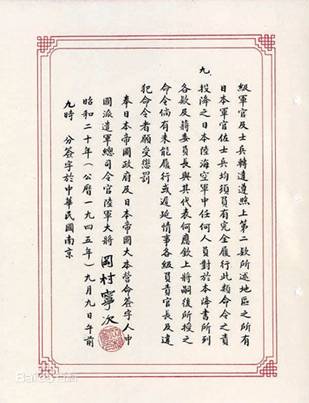 級軍官及士兵轉達遵照上第二款所述地區之所有
日本軍官佐士兵均須負有完全履行此類命令之責
九、投降之日本陸海空軍中任何人員對於本降書所列
各款及蔣委員長與其代表何應欽上將嗣後所授之
命令倘有未能履行或遲延情事各級負責官長及違
犯命令者願受懲罰
奉日本帝國政府及日本帝國大本營命簽字人中
國派遣軍總司令官陸軍大將 岡村寧次
昭和二十年（公曆一九四五年）九月九日午前
九時 分簽字於中華民國南京
Baidu百科